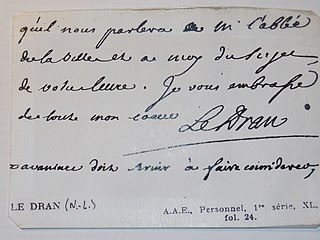 qu'il nous parlera à mr l'abbé
de la Ville et a moy du sujet
de votre lettre. Je vous embrasse
de tout mon coeur
LeDran
avanture doit servir à faire considerer,
LE DRAN (N.-L.)
A.A.E., Personnel, 1re série, XL,
fol. 24.